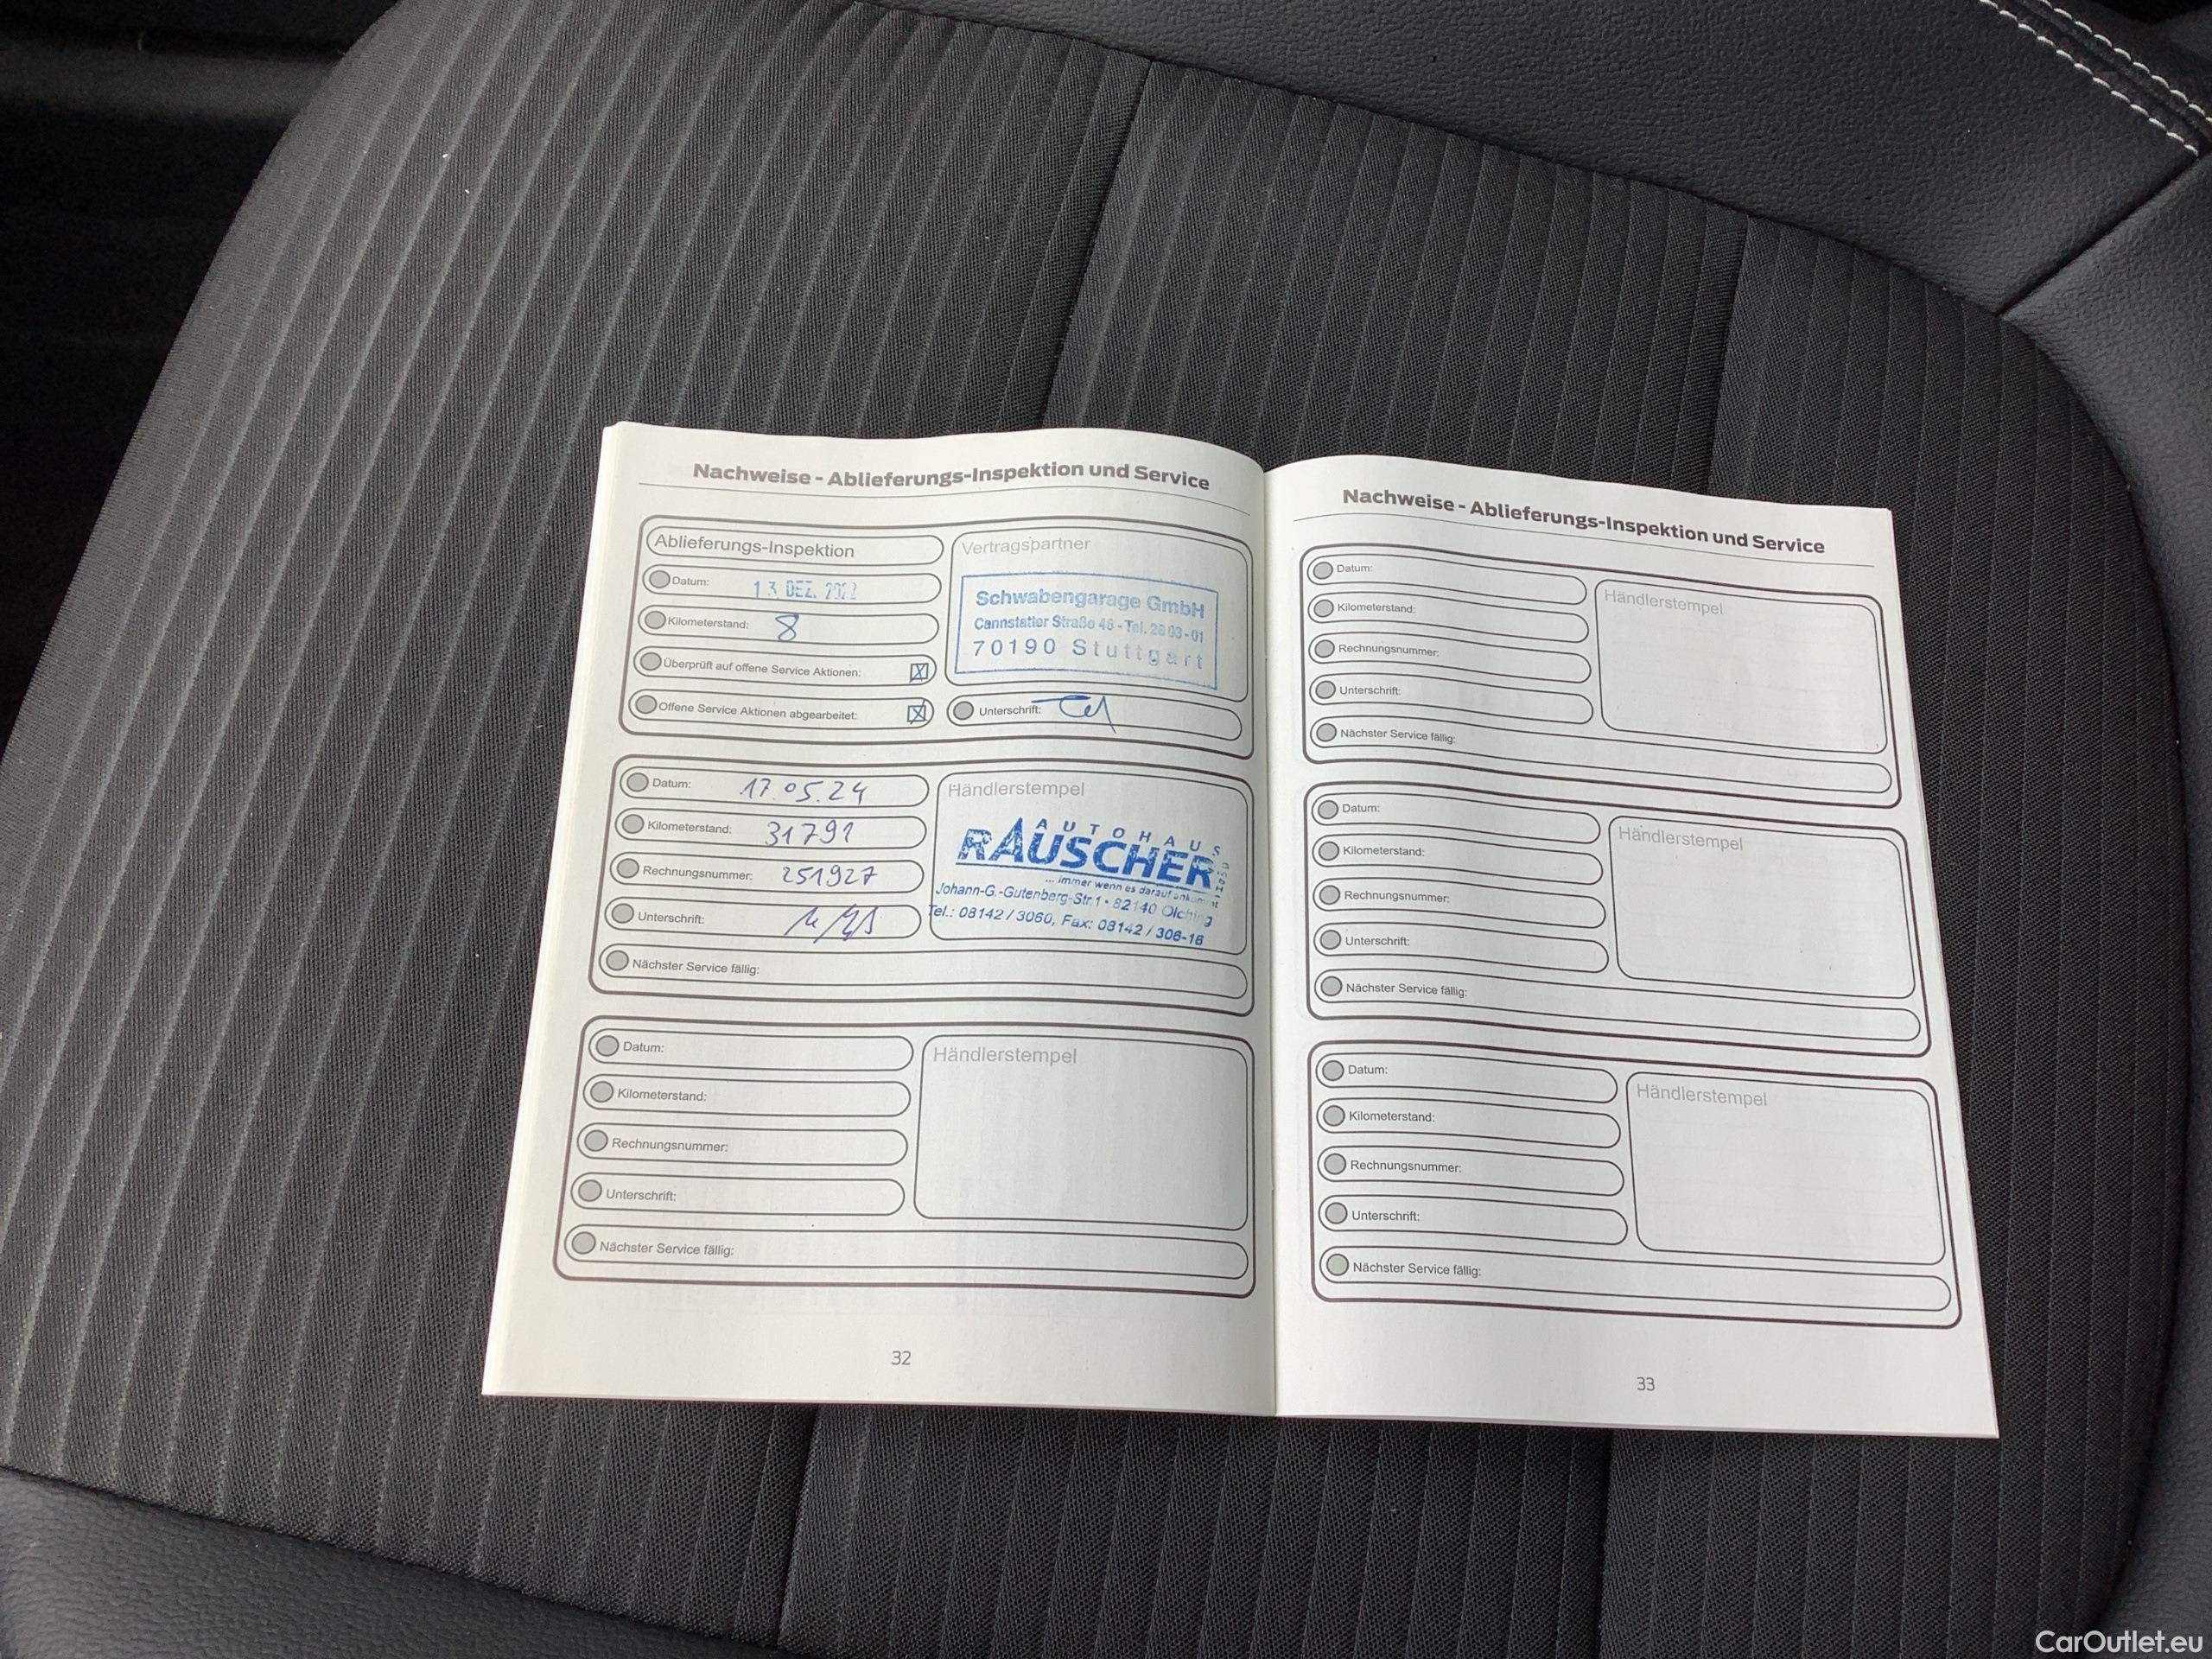 Nachweise - Ablieferungs-Inspektion und Service
Ablieferungs-Inspektion
Datum: 13. DEZ. 2022
Kilometerstand: 8
Überprüft auf offene Service Aktionen: X
Offene Service Aktionen abgearbeitet: X
Vertragspartner
Schwabengarage GmbH
Cannstatter Straße 46 - Tel. 28 93-01
70190 Stuttgart
Unterschrift:
Datum: 17.05.24
Kilometerstand: 31791
Rechnungsnummer: 251927
Unterschrift:
Händlerstempel
AUTOHAUS
RAUSCHER
... immer wenn es darauf ankommt
Johann-G.-Gutenberg-Str.1 • 82140 Olching
Tel.: 08142 / 3060, Fax: 08142 / 306-16
Nächster Service fällig:
Datum:
Kilometerstand:
Rechnungsnummer:
Unterschrift:
Händlerstempel
Nächster Service fällig:
32
Nachweise - Ablieferungs-Inspektion und Service
Datum:
Kilometerstand:
Rechnungsnummer:
Unterschrift:
Händlerstempel
Nächster Service fällig:
Datum:
Kilometerstand:
Rechnungsnummer:
Unterschrift:
Händlerstempel
Nächster Service fällig:
Datum:
Kilometerstand:
Rechnungsnummer:
Unterschrift:
Händlerstempel
Nächster Service fällig:
33
CarOutlet.eu